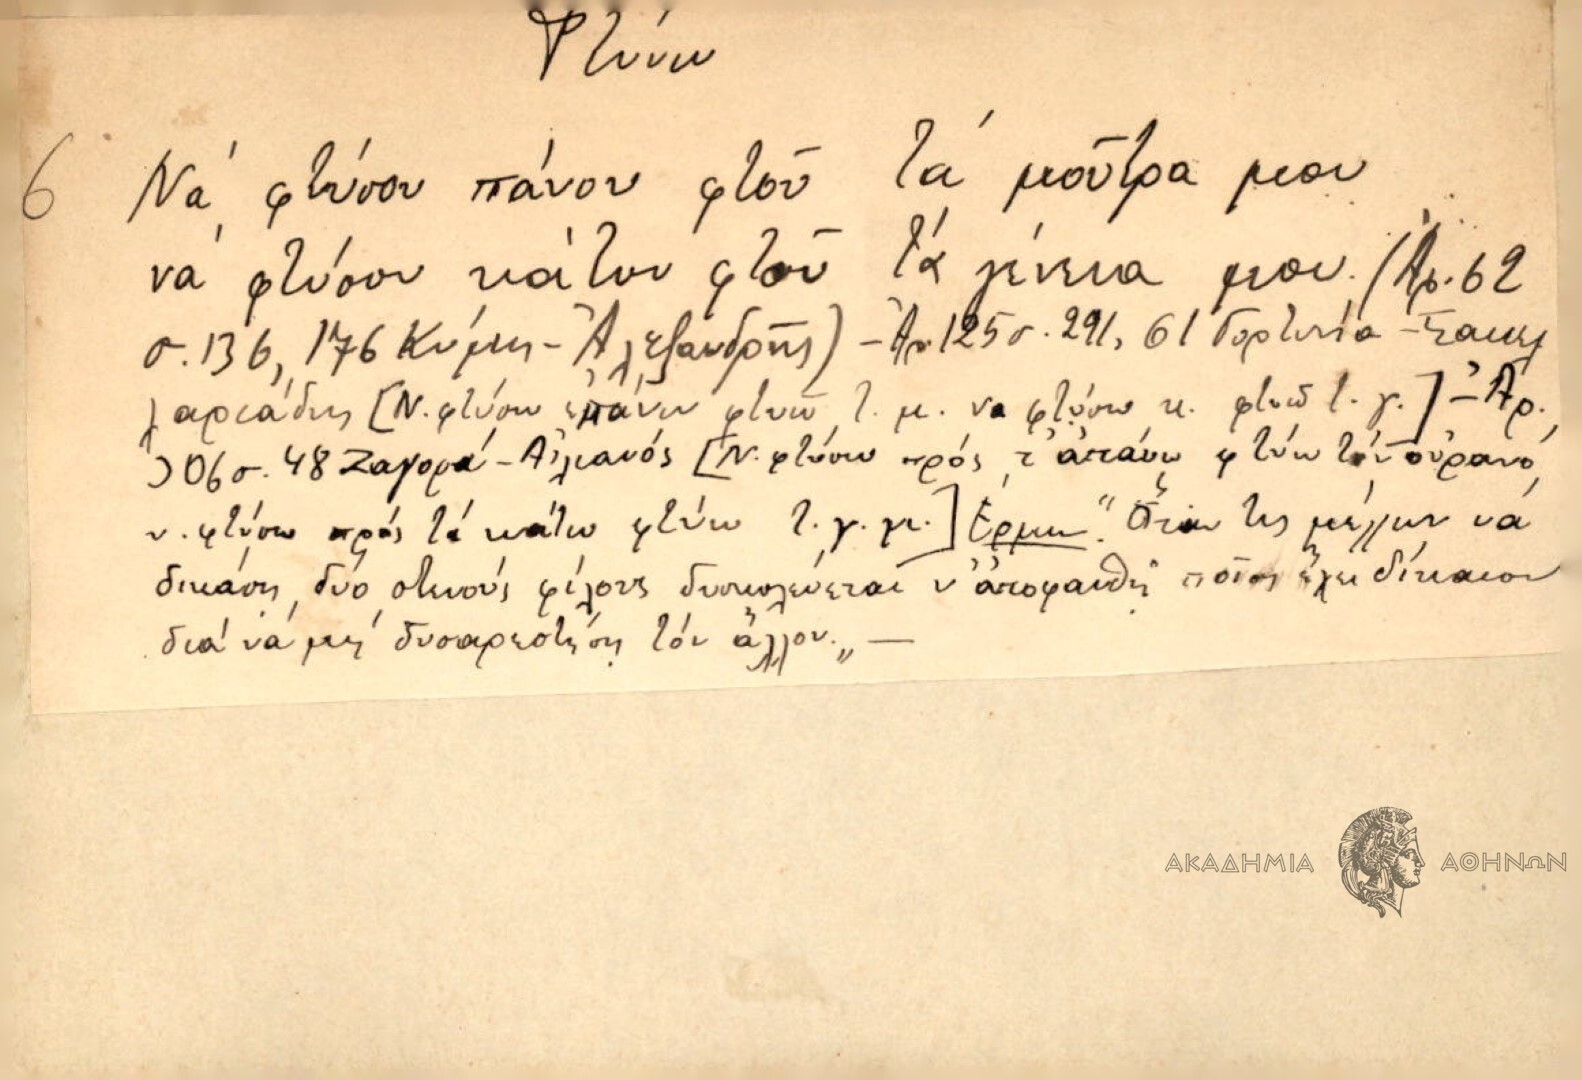 Φτύνω
6 Νά φτύσου πάνου φτοῦ τά μοῦτρα μου
νά φτύσου κάτου φτοῦ τά γένεια μου. (Ἀρ. 62
σ. 136, 176 Κύμης - Ἀλεξανδρῆς) - Ἀρ. 125 σ. 291, 61 Γορτυνία - Σακελ
λαριάδης [Ν. φτύσω ἐπάνω φτυῶ τ. μ. να φτύσω κ. φτυῶ τ. γ.] - Ἀρ.
206 σ. 48 Ζαγορά - Αἰλιανός [Ν. φτύσω πρός τ' ἀπάνω φτύνω τόν οὐρανό
ν. φτύσω πρός τά κάτω φτύνω τ. γ. μ.] Ἑρμ. "Ὅταν τις μέλλῃ νά
δικάσῃ δύο στενούς φίλους δυσκολεύεται ν' ἀποφανθῇ ποῖος ἔχει δίκαιον
διά νά μή δυσαρεστήσῃ τόν ἄλλον." —
ΑΚΑΔΗΜΙΑ ΑΘΗΝΩΝ